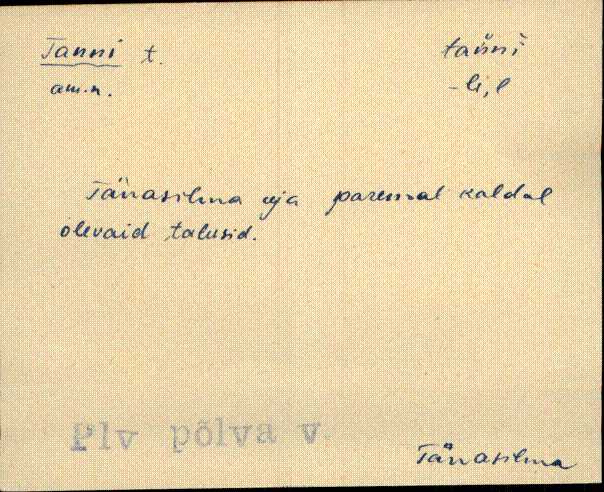 Tanni t.
tańni
am.n.
-le, l
Tänasilma oja paremal kaldal
olevaid talusid.
Plv põlva v.
Tänasilma